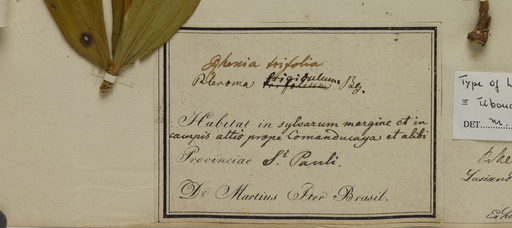 trifolia
Rheroma frigidulum trifolium
Habitat in sylvarum margine et in
campis altis prope Comanducaya et alibi
Provinciae St. Pauli.
Dr. Martius Iter Brasil.
Type of
≡ Tibouc
DET. M.
Lasiand